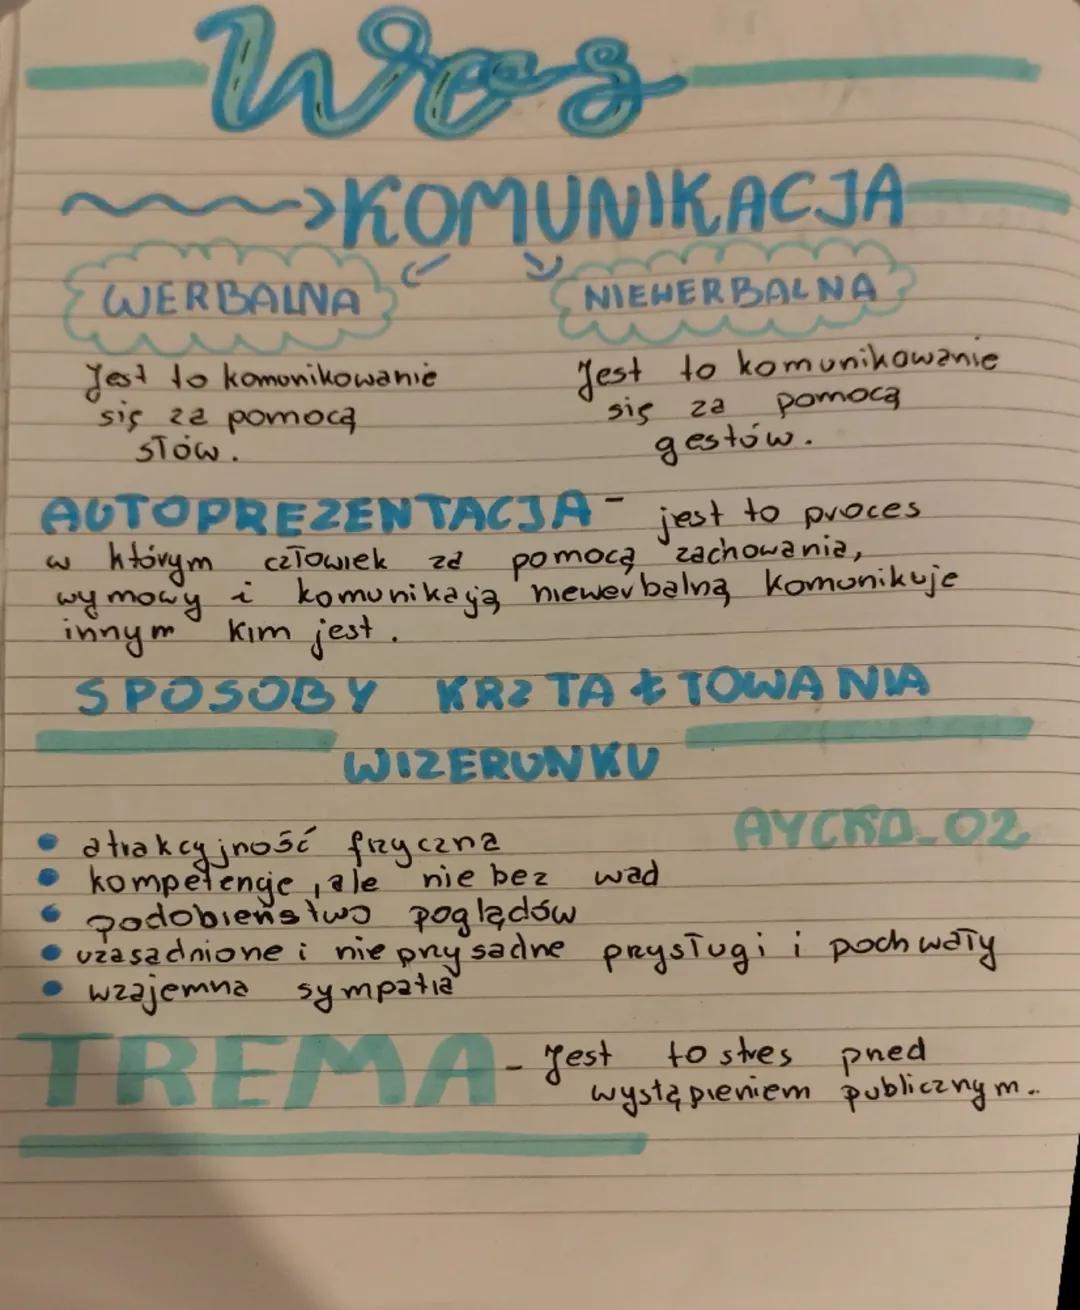 Wos
KOMUNIKACJA
WERBALNA
NIEWERBALNA
Jest to komunikowanie
się za pomocą
słów.
Jest to komunikowanie
się za pomocą
gestów.
AUTOPREZENTACJA - jest to proces
w którym człowiek za pomocą zachowania,
wymowy i komunikają niewerbalną komunikuje
innym kim jest.
SPOSOBY KRZTAŁTOWANIA
WIZERUNKU
AYCKO_02
• atrakcyjność fizyczna
• kompetencje, ale nie bez wad
• podobieństwo poglądów
• uzasadnione i nie przysadne przysługi i pochwały
• wzajemna sympatia
TREMA - Jest to stres przed
wystąpieniem publicznym..